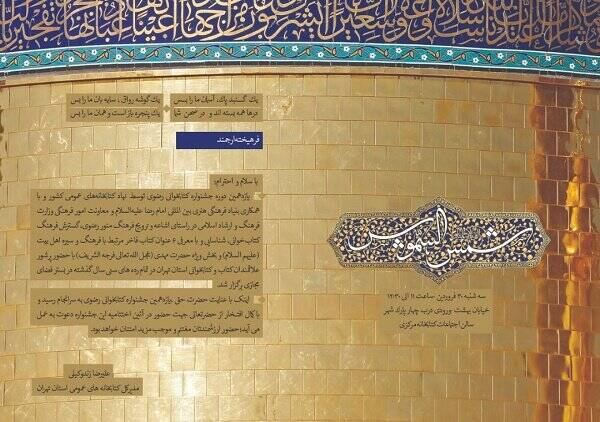 یک گنبد پاک، آسمان ما را بس
یک گوشه رواق، سایه بان ما را بس
درها همه بسته اند و در صحن شما
یک پنجره باز است و همان ما را بس
فرهیخته ارجمند
با سلام و احترام؛
یازدهمین دوره جشنواره کتابخوانی رضوی توسط نهاد کتابخانه‌های عمومی کشور و با
همکاری بنیاد فرهنگی هنری بین المللی امام رضا علیه‌السلام و معاونت امور فرهنگی وزارت
فرهنگ و ارشاد اسلامی در راستای اشاعه و ترویج فرهنگ منور رضوی، گسترش فرهنگ
کتاب‌خوانی، شناسایی و با معرفی ۶ عنوان کتاب فاخر مرتبط با فرهنگ و سیره اهل بیت
(علیهم السلام) و بخش ویژه حضرت مهدی (عجل الله تعالی فرجه الشریف) با حضور پرشور
علاقمندان کتاب و کتابخوانی استان تهران در تمام رده های سنی سال گذشته در بستر فضای
مجازی برگزار شد.
اینک با عنایت حضرت حق، یازدهمین جشنواره کتابخوانی رضوی به سرانجام رسید و
با کمال افتخار از حضرتعالی جهت حضور در آئین اختتامیه این جشنواره دعوت به عمل
می آید؛ حضور ارزشمندتان مغتنم و موجب مزید امتنان خواهد بود.
علیرضا زندوکیلی
مدیرکل کتابخانه های عمومی استان تهران
شمس الشموس
سه شنبه ۳۰ فروردین -ساعت ۱۱ الی ۱۲:۳۰
خیابان بهشت -ورودی درب چهار پارک شهر
سالن اجتماعات کتابخانه مرکزی